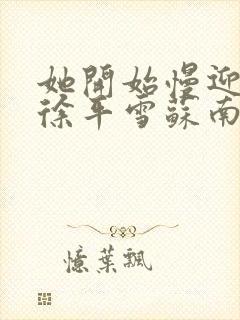 她開始慢迎
徐平雪蘇南
憶葉飄